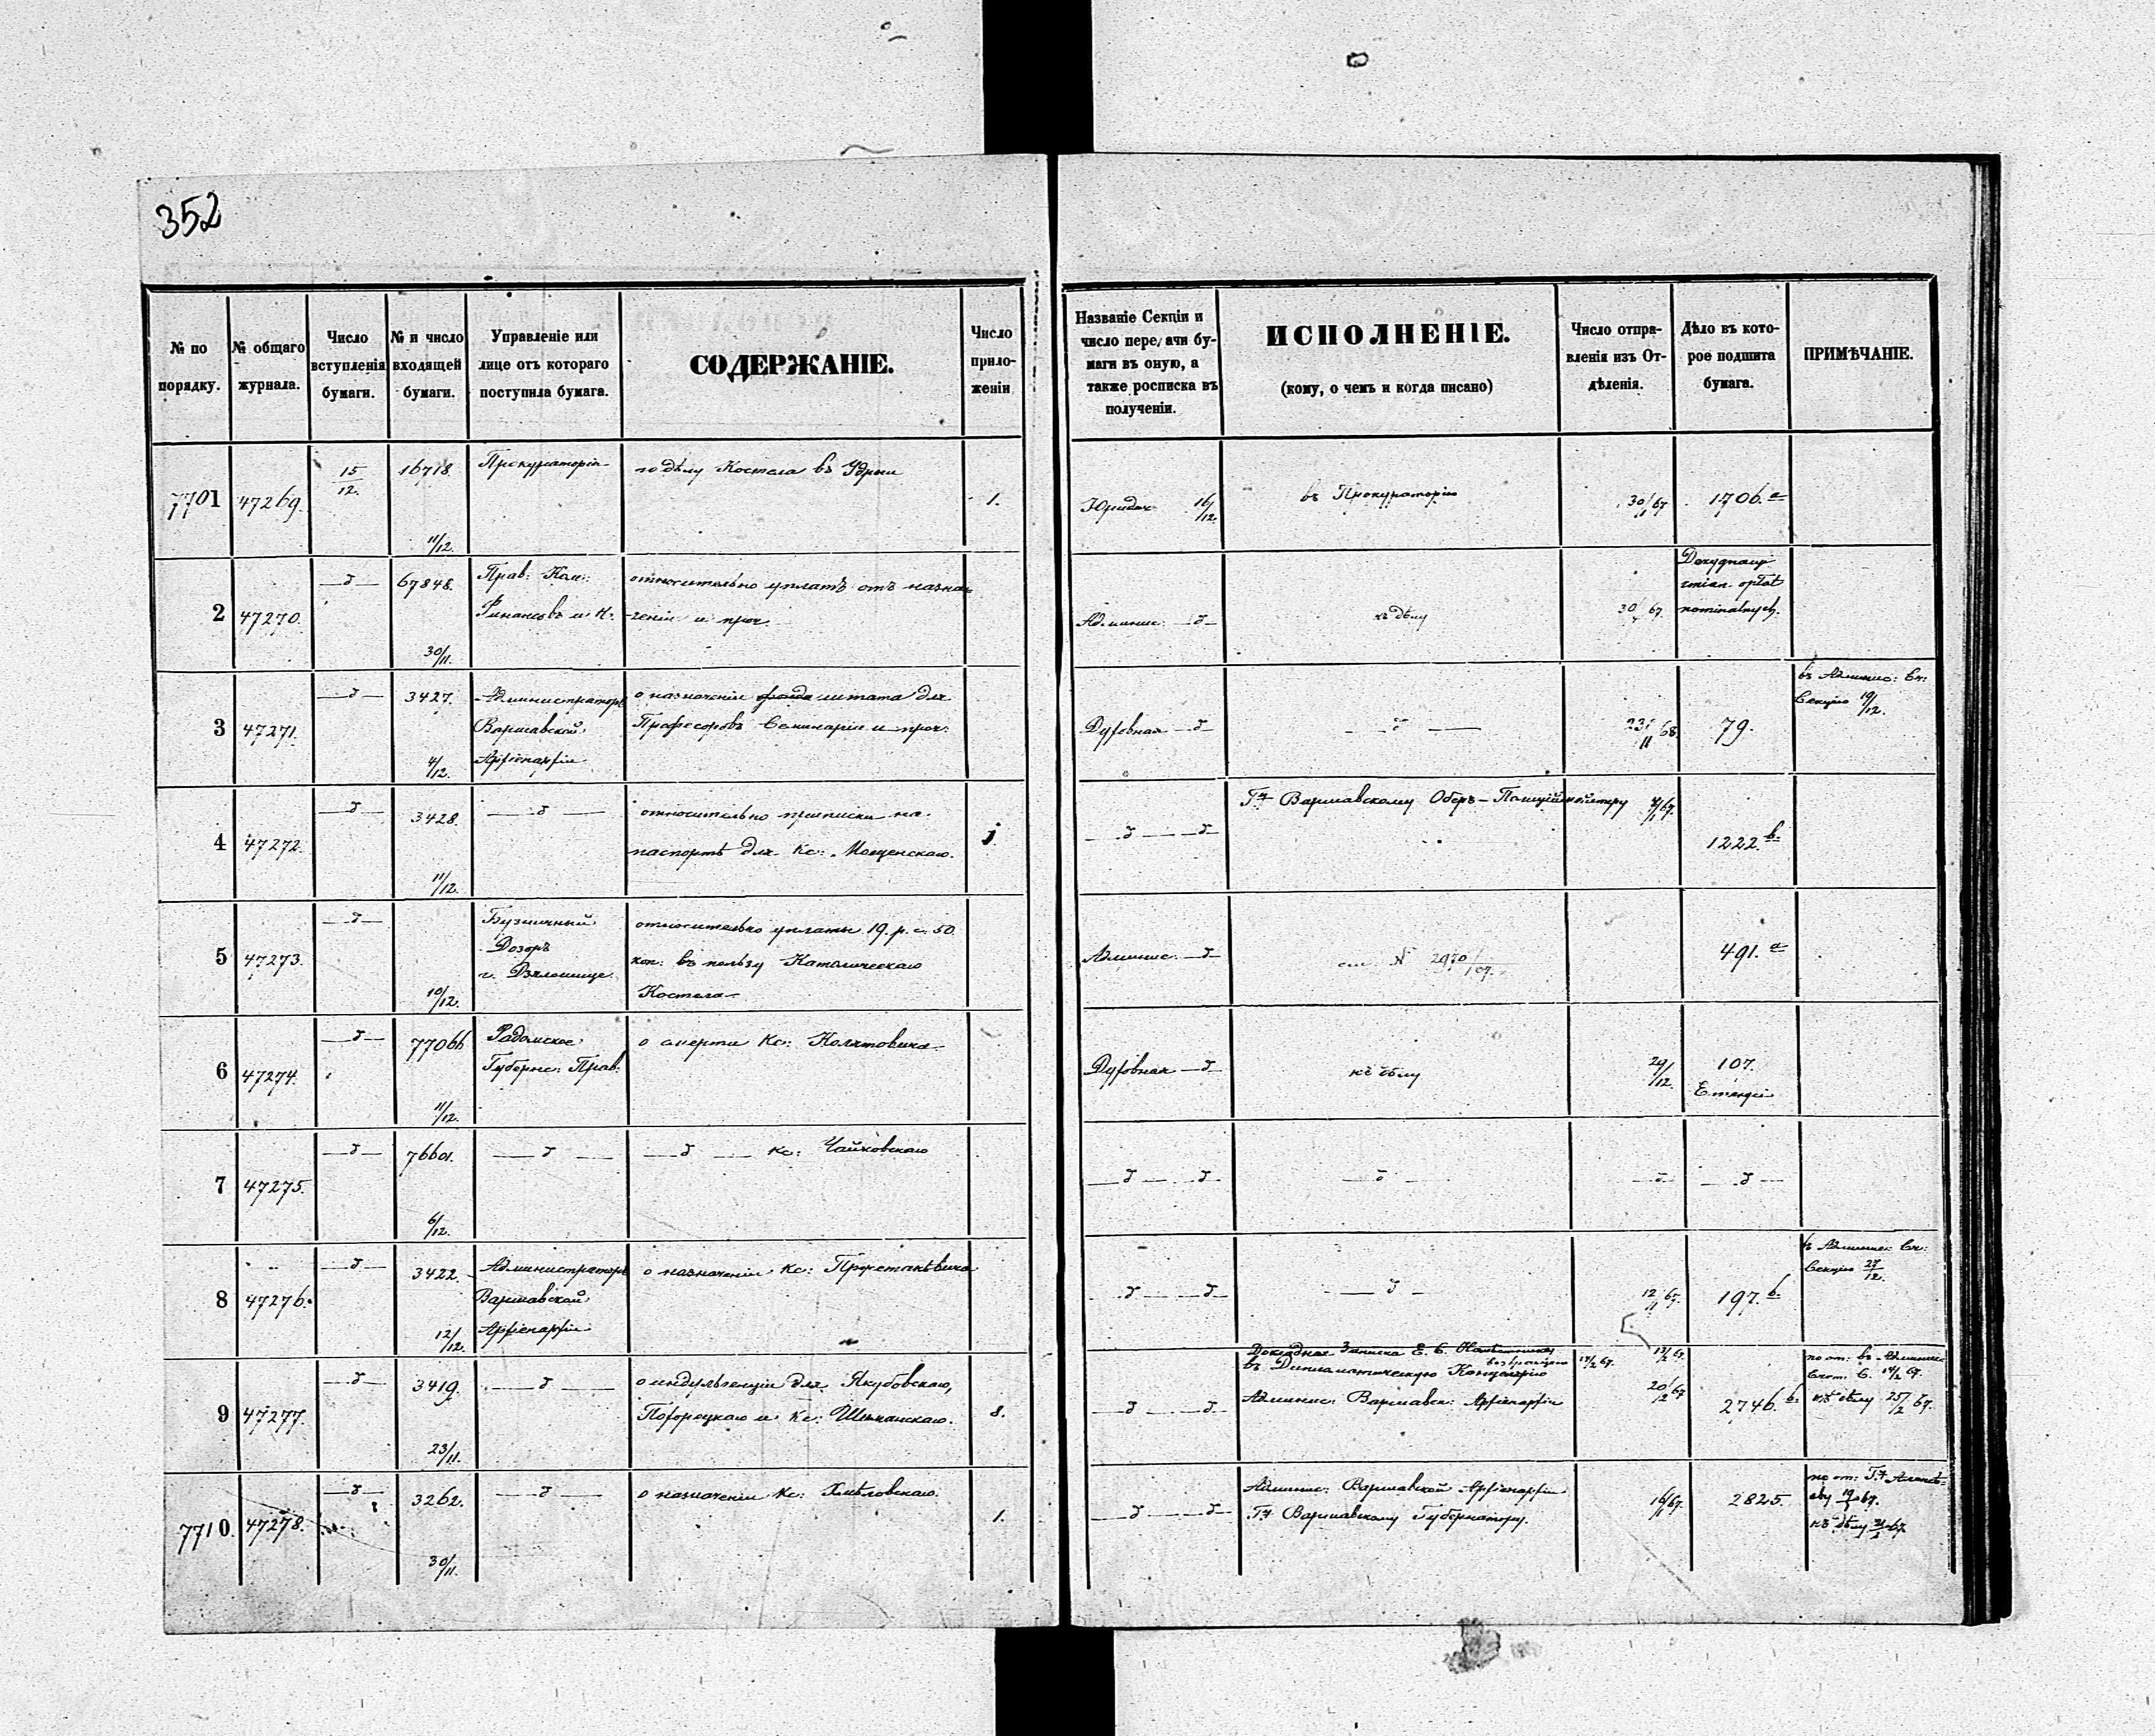 352
№ по порядку.
№ общаго журнала.
Число вступленія бумаги.
№ и число входящей бумаги.
Управленіе или лице отъ котораго поступила бумага.
СОДЕРЖАНІЕ.
Число приложеніи
Названіе Секціи и число передачи бумаги въ оную, а также росписка въ полученіи.
ИСПОЛНЕНІЕ.
(кому, о чемъ и когда писано)
Число отправленія изъ Отдѣленія.
Дѣло въ которое подшита бумага.
ПРИМѢЧАНІЕ.
7701 47269. 15/12. 16718. 11/12. Прокураторія
по дѣлу Костела въ
1.
Юридич. 16/12. въ Прокураторію 30/11 67 1706.a
2 47270. —д— 67848. 30/11. Прав: Ком:
Финансовъ и К.
относительно уплатъ отъ назна-
-ченія и проч.
Админис: —д— къ дѣлу 30/ 67.
opłat
nominalnych.
3 47271. —д— 3427. 4/12. Администраторъ
Варшавской
Архіепархіи
о назначеніи штата для
Професоровъ Семинаріи и проч.
Духовная —д —д— 23/11 68. 79.
въ Админис: Сч:
Секцію 19/12.
4 47272. —д— 3428. 11/12. —д—
относительно прописки на
паспортъ для Кс:
1.
—д— —д Гну Варшавскому Оберъ-Полиціймейстеру /1 67. 1222.b
5 47273. —д— 10/12.
Дозоръ
г. Дзялошице
относительно уплаты 19. р. с. 50
коп: въ пользу Католическаго
Костела
Админис. —д см N 2970/67. 491.a
6 47274. —д— 77066 11/12. Радомское
Губернс: Прав:
о смерти Кс: Колятовича
Духовная —д къ дѣлу 29/12. 107.
7 47275. —д— 76601. 6/12. —д— —д— Кс: Чайковскаго
—д— —д —д— —д— —д—
8 47276. —д— 3422. 12/12. Администраторъ
Варшавской
Архіепархіи
о назначеніи Кс:
—д— —д —д— 12/11 67. 197.b
въ Админис: Сч:
Секцію 27/12.
9 47277. —д— 3419. 23/11. —д—
о индульгенціи для Якубовскаго,
и Кс: Шиманскаго.
8.
Докладная Записка Е. С. Намѣстнику 13/2 67.
въ Дипломатическую Канцелярію 17/2 67.
Админис: Варшавск: Архіепархіи 20/2 67
—д— —д 2746.b
къ дѣлу 25/2 67.
7710. 47278. —д— 3262. 30/11. —д—
о назначеніи Кс: Хмѣловскаго.
1.
—д— —д Админис: Варшавской Архіепархіи
Гну Варшавскому Губернатору.
16/1 67. 2825.
къ дѣлу